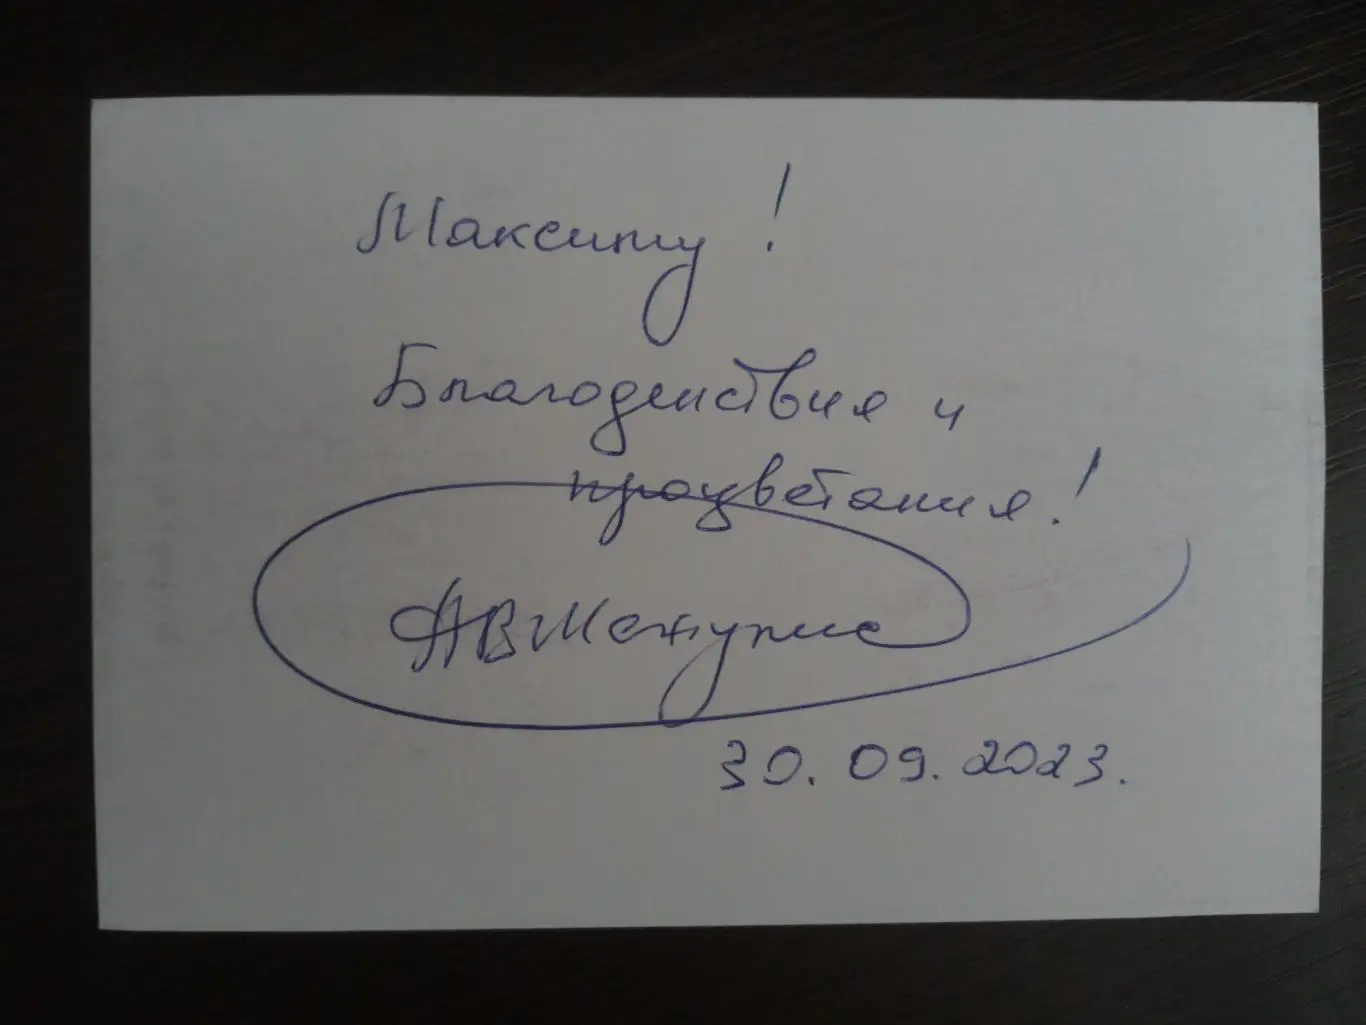 Максиму!
Благоденствия и
процветания!
30.09.2023.